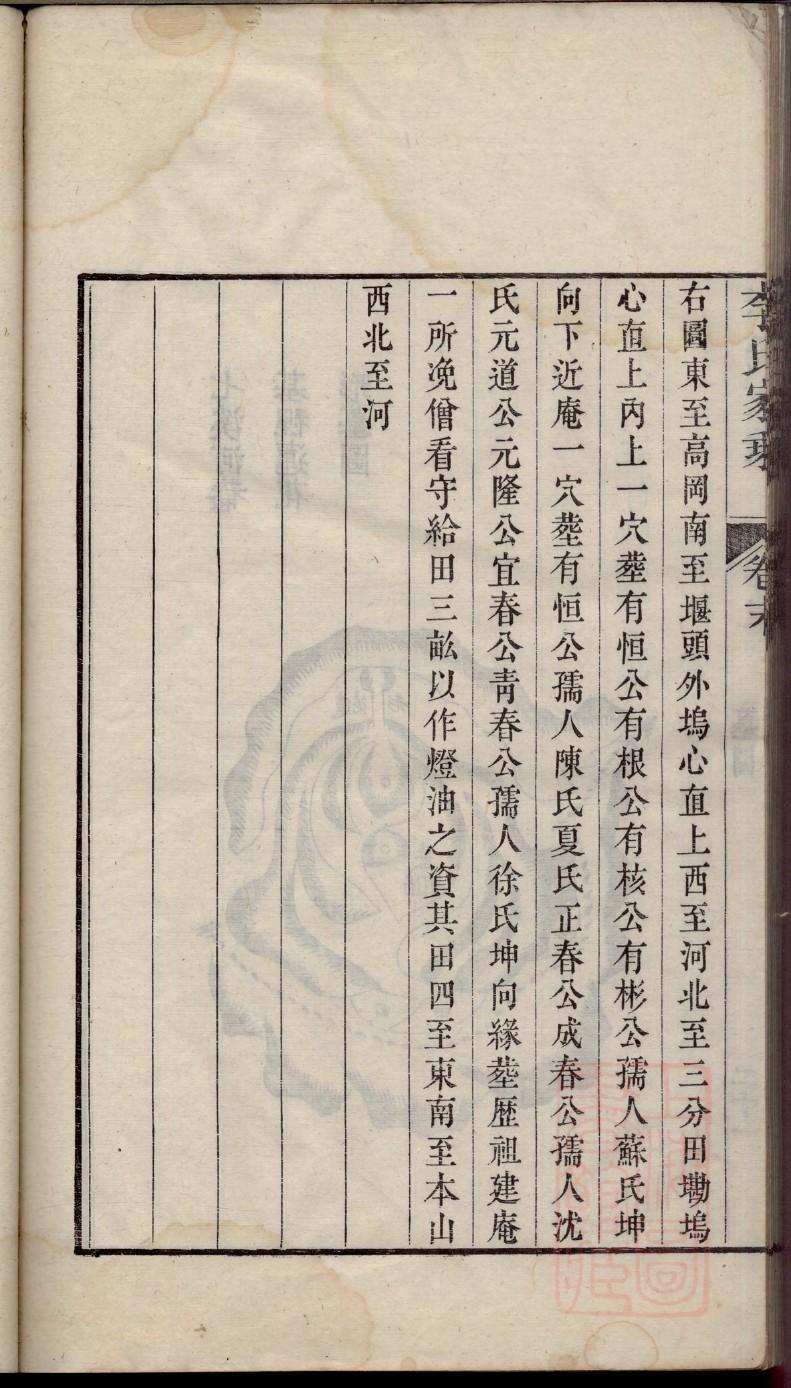 李氏家乘 卷末
右圖東至高岡南至堰頭外塢心直上西至河北至三分田墈塢
心直上丙上一穴塟有恒公有根公有核公有彬公孺人蘇氏坤
向下近庵一穴塟有恒公孺人陳氏夏氏正春公成春公孺人沈
氏元道公元隆公宜春公靑春公孺人徐氏坤向緣塟歷祖建庵
一所浼僧看守給田三畆以作燈油之資其田四至東南至本山
西北至河